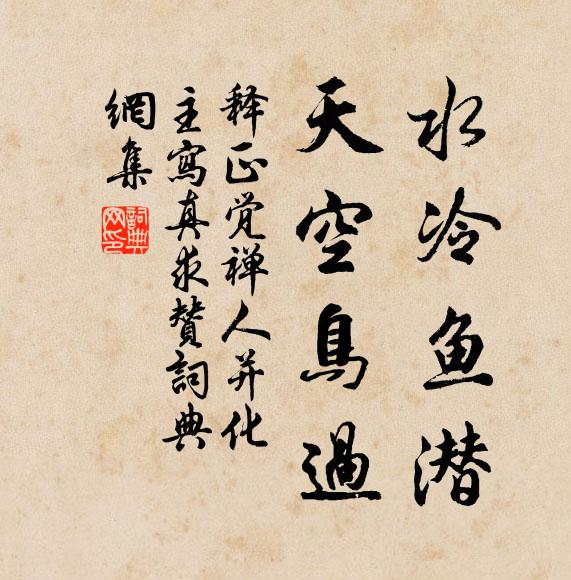 水冷鱼潜
天空鳥過
释正觉禅人并化
主寫真求贊詞典
網集
詞典
网印